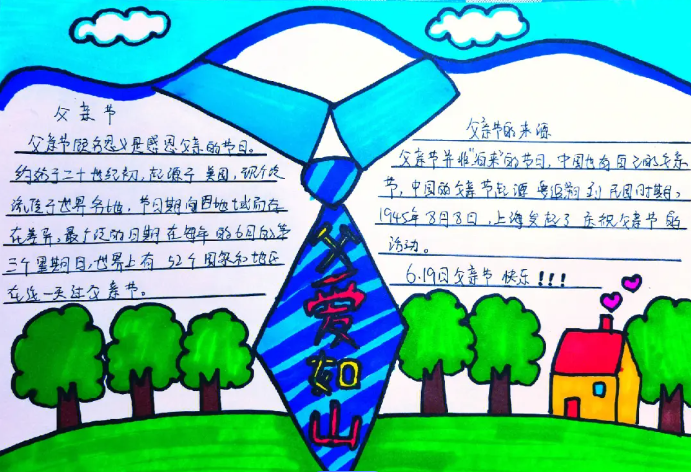 父亲节
父亲节顾名思义是感恩父亲的节日。
约始于二十世纪初,起源于美国,现广泛
流传于世界各地,节日期因地域而存
在差异。最广泛的日期在每年的6月的第
三个星期日,世界上有52个国家和地区
在这一天过父亲节。
父亲节的来源
父亲节并非"泊来"的节日,中国也有自己的父亲
节,中国的父亲节起源要追溯到民国时期。
1945年8月8日,上海发起了庆祝父亲节的
活动。
6.19日父亲节快乐!!!
父爱如山